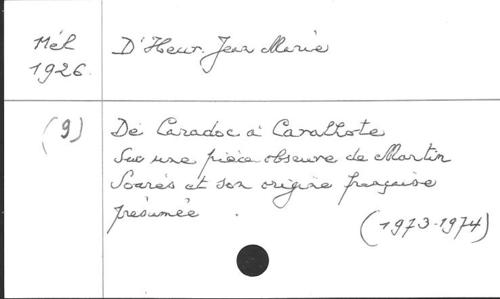 Mél
1926.
D'Heur. Jean Marie
(9)
De Caradoc à Caralhote
Sur une pièce obscure de Martin
Soarés et son origine française
présumée.
(1973-1974)